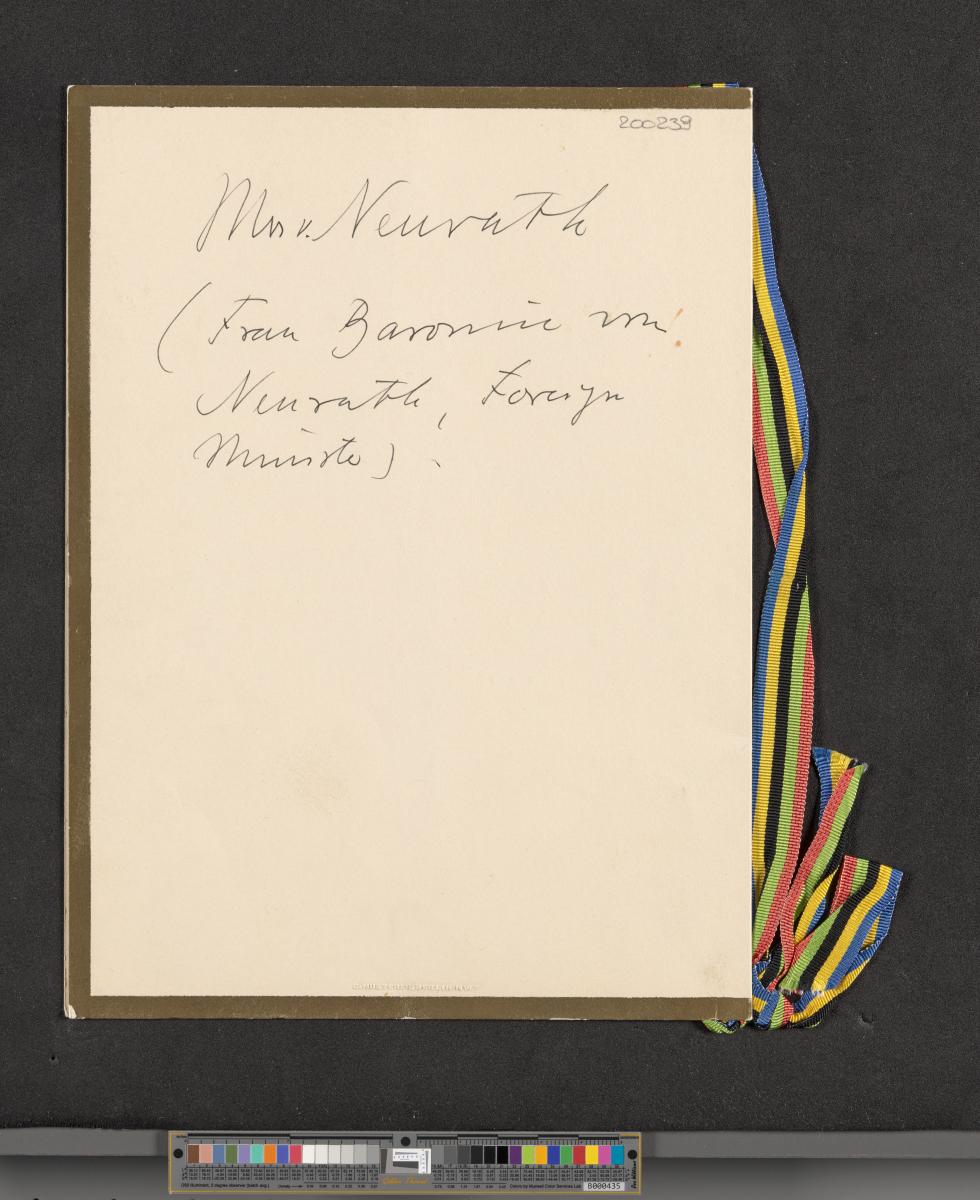 200239
Mrs v. Neurath
(Frau Baronin von
Neurath, Foreign
Minister).
B000435